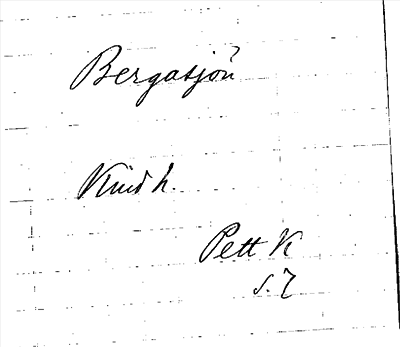 Bergasjön
Kind h.
Pett K
s. 7